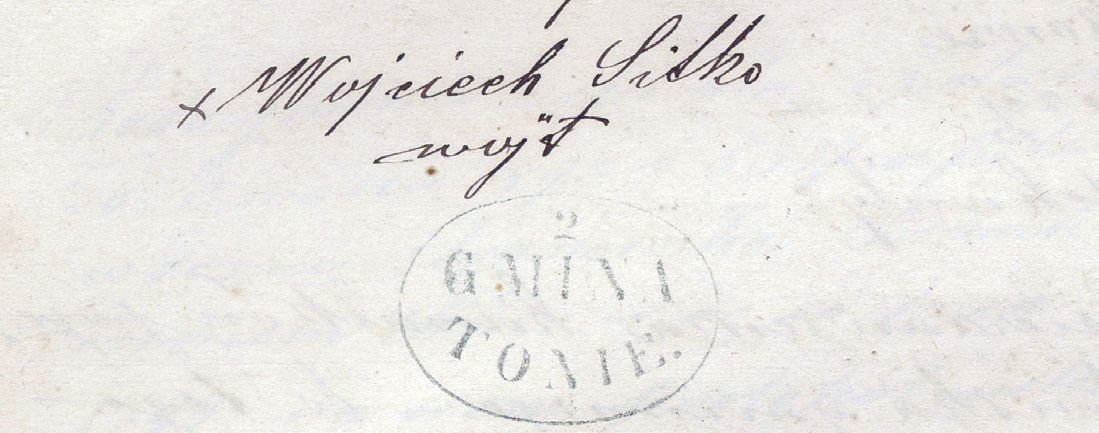 x Wojciech Sitko
wójt
GMINA
TONIE.